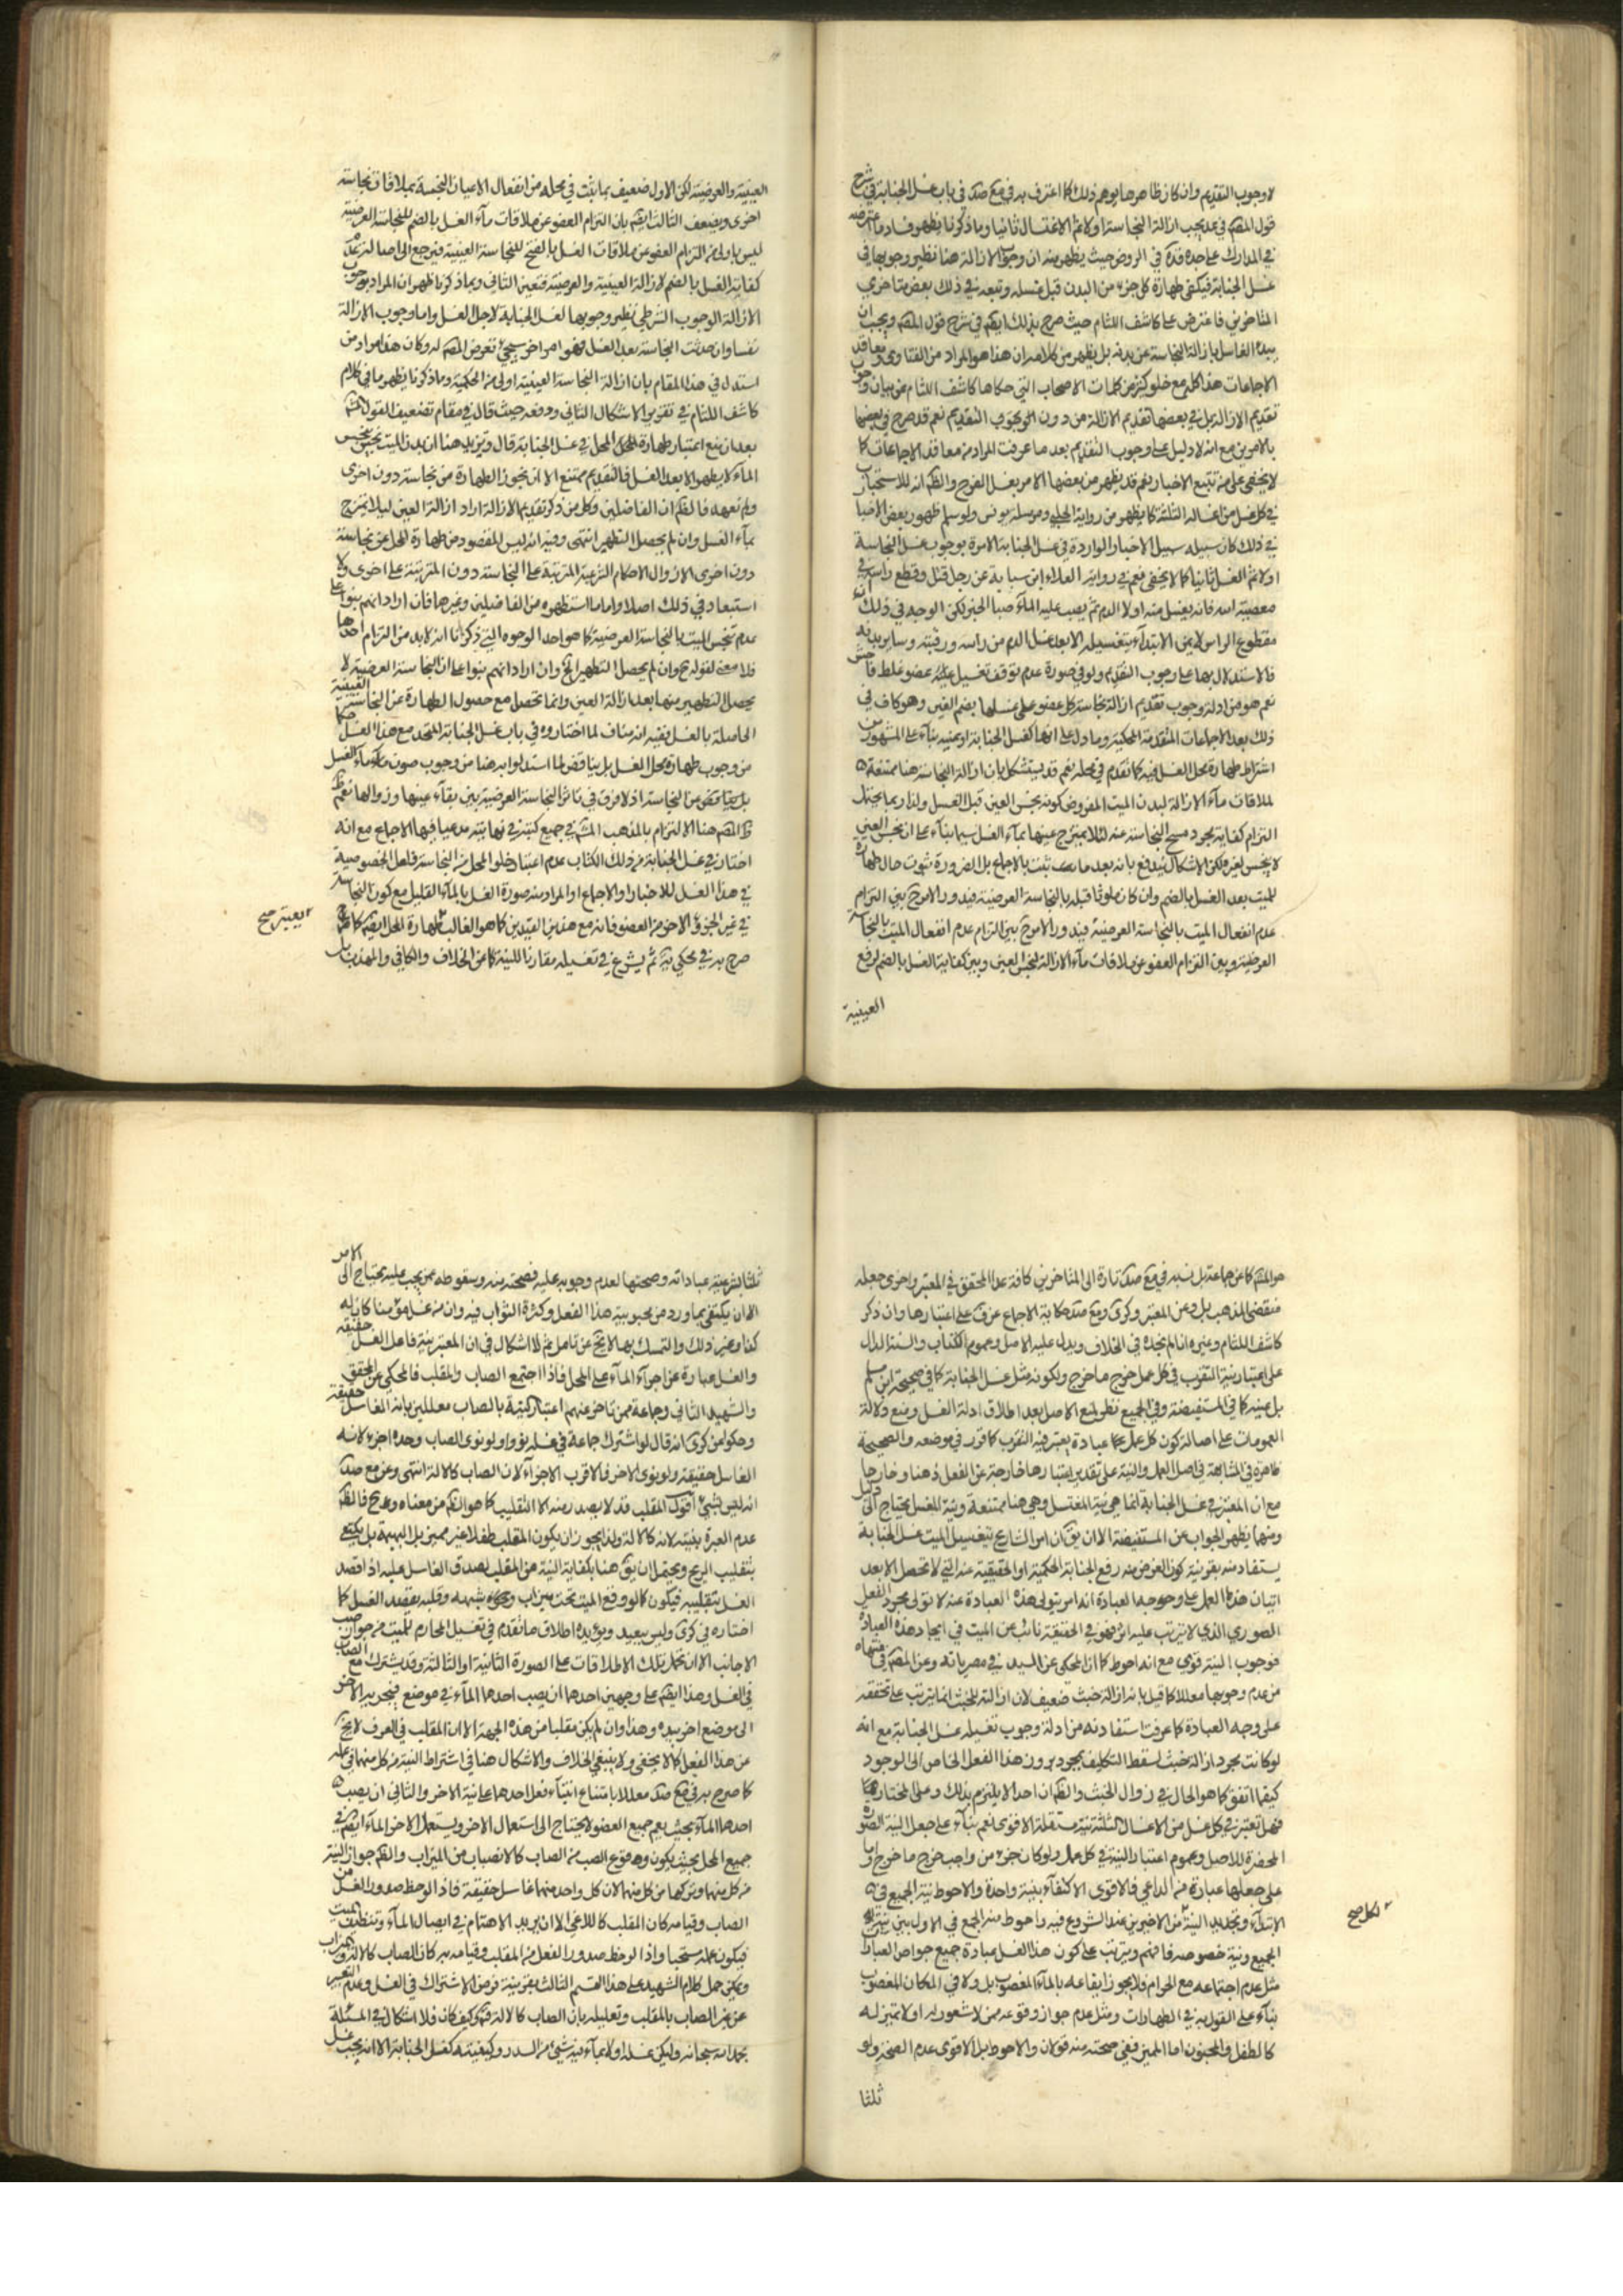 لا وجوب التقديم وان كان ظاهرها يوهم ذلك كما اعترف به في مع صد في باب غسل الجنابة في شرح
قول المص في عد يجب ازالة النجاسة اولا ثم الاغتسال ثانيا وما ذكرنا يظهر فساد ما اعترضه
في المدارك على جده قده في الروض حيث يظهر منه ان وجوب الازالة هنا نظير وجوبها في
غسل الجنابة فيكفي طهارة كل جزء من البدن قبل غسله وتبعه في ذلك بعض متاخري
المتاخرين فاعترض على كاشف اللثام حيث صرح بذلك ايضا في شرح قول المص ويجب ان
يبدء الغاسل بازالة النجاسة عن بدنه بل يظهر من كلامه ان هذا هو المراد من الفتاوى ومعاقد
الاجماعات هذا كله مع خلو كثير من كلمات الاصحاب التي حكاها كاشف اللثام عن بيان وجوب
تقديم الازالة بل في بعضها تقديم الازالة من دون الوجوب التقديم نعم قد صرح في بعضها
بالامرين مع انه لا دليل على وجوب التقديم بعد ما عرفت المراد من معاقد الاجماعات كما
لا يخفى على من تتبع الاخبار نعم قد يظهر من بعضها الامر بغسل الفرج والظ انه للاستحباب
في كل غسل من اغساله الثلثة كما يظهر من رواية الحلبي ومرسلة يونس ولو سلم ظهور بعض الاخبار
في ذلك كان سبيله سبيل الاخبار الواردة في غسل الجنابة الامرة بوجوب غسل النجاسة
اولا ثم الغسل ثانيا كما لا يخفى نعم في رواية العلاء ابن سيابة عن رجل قتل وقطع راسه في
معصية الله فانه يغسل منه اولا الدم ثم يصب عليه الماء صبا الخبر لكن الوجه في ذلك
مقطوع الراس لا يمكن الابتداء بتغسيله الا بعد غسل الدم من راسه ورقبته وساير بدنه
فالاستدلال بها على وجوب التقديم ولو في صورة عدم توقف تغسيل عضو غلط فاحش
نعم هو من ادلة وجوب تقديم ازالة نجاسة كل عضو على غسلها بضم الغين وهو كاف في
ذلك بعد الاجماعات المتقدمة المحكية وما دل على انها كغسل الجنابة او بعينه بناء على المشهور من
اشتراط طهارة محل الغسل فيه كما تقدم في محله نعم قد يستشكل بان ازالة النجاسة هنا ممتنعة
لملاقات ماء الازالة لبدن الميت المفروض كونه نجس العين قبل الغسل ولذا ربما يحتمل
التزام كفاية مجرد مسح النجاسة عنه لئلا يمتزج عينها بماء الغسل سيما بناء على ان نجس العين
لا ينجس لغيره لكن الاشكال يندفع بانه بعد ما ثبت بالاجماع بل الضرورة ثبوت حال طهارة
للميت بعد الغسل بالضم وان كان ملوثا قبله بالنجاسة العرضية فيدور الامر بين التزام
عدم انفعال الميت بالنجاسة العرضية فيدور الامر بين التزام عدم انفعال الميت بالنجاسة
العرضية وبين التزام العفو عن ملاقات ماء الازالة لنجس العين وبين كفاية الغسل بالضم لرفع
العينية
العينية والعرضية لكن الاول ضعيف بما يثبت في محله من انفعال الاعيان النجسة بملاقات نجاسة
اخرى ويضعف الثالث ايضا بان التزام العفو عن ملاقات ماء الغسل بالضم للنجاسة العرضية
ليس باولى من التزام العفو عن ملاقات الغسل بالفتح للنجاسة العينية فيرجع الى اصالة عدم
كفاية الغسل بالضم لازالة العينية والعرضية فتعين الثاني وبما ذكرنا ظهر ان المراد بوجوب
الازالة الوجوب الشرطي نظير وجوبها لغسل الجنابة لاجل الغسل واما وجوب الازالة
نفسا وان حدثت النجاسة بعد الغسل فهو امر اخر سيجيء تعرض المص له وكان هذا مراد من
استدل في هذا المقام بان ازالة النجاسة العينية اولى من الحكمية وما ذكرنا يظهر ما في كلام
كاشف اللثام في تقرير الاشكال الثاني ودفعه حيث قال في مقام تضعيف القول
بعد ان منع اعتبار طهارة المحل في غسل الجنابة قال ويزيد هنا ان بدن الميت نجس ينجس
الماء لا يطهر الا بعد الغسل فالتقديم ممتنع الا ان يجوز الطهارة من نجاسة دون اخرى
ولم نعهده فالظ ان الفاضلين وكل من ذكر تقديم الازالة اراد ازالة العين ليلا يمتزج
بماء الغسل وان لم يحصل التطهير انتهى وفيه انه ليس المقصود من طهارة المحل عن نجاسة
دون اخرى الا زوال الاحكام الشرعية المترتبة على النجاسة دون المترتبة على اخرى ولا
استبعاد في ذلك اصلا واما ما استظهره من الفاضلين وغيرهما فان اراد انهم بنوا على
عدم تنجس الميت بالنجاسة العرضية كما هو احد الوجوه التي ذكرنا انه لابد من التزام احدها
فلا معنى لقوله ح وان لم يحصل التطهير الخ وان اراد انهم بنوا على ان النجاسة العرضية لا
يحصل التطهير منها بعد ازالة العين وانما تحصل مع حصول الطهارة عن النجاسة العينية
الحاصلة بالغسل ففيه انه مناف لما اختاروه في باب غسل الجنابة المتحد مع هذا الغسل حكما
من وجوب طهارة محل الغسل بل يناقض لما استدلوا به هنا من وجوب صون ماء الغسل
عن النجاسة اذ لا فرق في تاثر النجاسة العرضية بين بقاء عينها وزوالها نعم
ظ المص هنا الالتزام بالمذهب المش في جميع كتبه في نهايته مدعيا فيها الاجماع مع انه
اختار في غسل الجنابة من ذلك الكتاب عدم اعتبار خلو المحل من النجاسة فلعل الخصوصية
في هذا الغسل للاخبار او الاجماع او المراد منه صورة الغسل بالماء القليل مع كون النجاسة
في غير الجزء الاخر من العضو فانه مع هذين القيدين كما هو الغالب طهارة المحل ايضا كما
صرح به في محكي ية ثم يشرع في تغسيله مقارنا للنية كما عن الخلاف والكافي والمهذب
يعتبر صح
هو المش كما عن جماعة بل نسبه في مع صد تارة الى المتاخرين كافة عدا المحقق في المعتبر واخرى جعله
مقتضى المذهب بل عن المعتبر وكرى ومع صد حكاية الاجماع عن ف على اعتبارها وان ذكر
كاشف اللثام وغيره انا لم نجده في الخلاف ويدل عليه الاصل وعموم الكتاب والسنة الدال
على اعتبار نية التقرب في كل عمل خرج ما خرج ولكونه مثل غسل الجنابة كما في صحيحة ابن مسلم
بل عينه كما في المستفيضة وفي الجميع نظر لمنع الاصل بعد اطلاق ادلة الغسل ومنع دلالة
العمومات على اصالة كون كل عمل عبادة يعتبر فيه التقرب كما قرر في موضعه والصحيحة
ظاهرة في المشابهة في اصل العمل والنية على تقدير اعتبارها خارجة عن الفعل ذهنا وخارجا
مع ان المعتبر في غسل الجنابة انما هي نية المغتسل وهي هنا ممتنعة ونية المغسل يحتاج الى دليل
ومنها يظهر الجواب عن المستفيضة الا ان يق ان امر الشارع بتغسيل الميت غسل الجنابة
يستفاد منه بقرينة كون الغرض منه رفع الجنابة الحكمية او الحقيقية عنه التي لا تحصل الا بعد
اتيان هذا العمل على وجه العبادة انه امر بتولي هذه العبادة عنه لا تولي مجرد الفعل
الصوري الذي لا يترتب عليه اثر فهو في الحقيقة نائب عن الميت في ايجاد هذه العبادة
فوجوب النية قوي مع انه احوط كما ان المحكي عن السيد في مصرياته وعن المص في منتهاه
من عدم وجوبها معللا كما قيل بانه ازالة خبث ضعيف لان ازالته للخبث انما يترتب على تحققه
على وجه العبادة كما عرفت استفادته من ادلة وجوب تغسيله غسل الجنابة مع انه
لو كانت مجرد ازالة خبث لسقط التكليف بمجرد بروز هذا الفعل الخاص الى الوجود
كيفما اتفق كما هو الحال في زوال الخبث والظ ان احدا لا يلتزم بذلك وعلى المختار
فهل تعتبر في كل غسل من الاغسال الثلثة نية مستقلة الاقوى نعم بناء على جعل النية الصورة
المخطرة للاصل وعموم اعتبار النية في كل عمل ولو كان جزء من واجب خرج ما خرج واما
على جعلها عبارة من الداعي فالاقوى الاكتفاء بنية واحدة والاحوط نية الجميع في
الابتداء وتجديد النية من الاخيرين عند الشروع فيه واحوط منه الجمع في الاول بين نية
الجميع ونية خصوصه فافهم ويترتب على كون هذا الغسل عبادة جميع خواص العبادة
مثل عدم اجتماعه مع الحرام فلا يجوز ايقاعه بالماء المغصوب بل ولا في المكان المغصوب
بناء على القول به في الطهارات ومثل عدم جواز وقوعه ممن لا شعور له او لا تميز له
كالطفل والمجنون اما المميز ففي صحته منه قولان والاحوط بل الاقوى عدم الصحة ولو
لكل صح
ثلثا
ثلثا لشرعية عباداته وصحتها لعدم وجوبه عليه فصحته منه وسقوطه عمن يجب عليه يحتاج الى الامر
الا ان يكتفي بما ورد من محبوبية هذا الفعل وكثرة الثواب فيه وان من غسل مؤمنا كان له
كذا وغير ذلك والتمسك بها لا يخ عن تامل ثم لا اشكال في ان المعتبر نية فاعل الغسل حقيقة
والغسل عبارة عن اجراء الماء على المحل فاذا اجتمع الصاب والمقلب فالمحكي عن المحقق
والشهيد الثاني وجماعة ممن تاخر عنهم اعتبار النية بالصاب معللين بانه الغاسل حقيقة
وحكوا عن كرى انه قال لو اشترك جماعة في غسله نووا ولو نوى الصاب وحده اجزء لانه
الغاسل حقيقة ولو نوى الاخر فالاقرب الاجزاء لان الصاب كالالة انتهى وعن مع صد
انه ليس بشيء اقول المقلب قد لا يصدر منه الا التقليب كما هو الظ من معناه وح فالظ
عدم العبرة بنيته لانه كالالة ولذا يجوز ان يكون المقلب طفلا غير مميز بل البهيمة بل يكتفي
بتقليب الريح ويحتمل ان يق هنا بكفاية النية من المقلب لصدق الغاسل عليه اذا قصد
الغسل بتقليبه فيكون كما لو وضع الميت تحت ميزاب ونحوه وقلبه بقصد الغسل كما
اختاره في كرى وليس ببعيد ويؤيده اطلاق ما تقدم في تغسيل المحارم للميت من جواز صب
الاجانب الا ان تحمل تلك الاطلاقات على الصورة الثانية او الثالثة وقد يشترك مع الصاب
في الغسل وهذا ايضا على وجهين احدهما ان يصب احدهما الماء في موضع فيجريه الاخر
الى موضع اخر بيده وهذا وان لم يكن مقلبا من هذه الجهة الا ان المقلب في العرف لا يخ
عن هذا الفعل كما لا يخفى ولا ينبغي الخلاف والاشكال هنا في اشتراط النية من كل منهما في عمله
كما صرح به في مع صد معللا بامتناع ابتناء فعل احدهما على نية الاخر والثاني ان يصب
احدهما الماء بحيث يعم جميع العضو لا يحتاج الى استعمال الاخر ويستعمل الاخر الماء ايضا في
جميع المحل بحيث يكون وقوع الصب من الصاب كالانصباب من الميزاب والظ جواز النية
من كل منهما وتركها من كل منهما لان كل واحد منهما غاسل حقيقة فاذا لوحظ صدور الغسل من
الصاب وقيامه كان المقلب كاللاغي الا ان يريد الاهتمام في ايصال الماء وتنظيف الميت
فيكون عمله مستحبا واذا لوحظ صدور الفعل من المقلب وقيامه به كان الصاب كالالة وميزاب
ويمكن حمل كلام الشهيد على هذا القسم الثالث بقرينة فرض الاشتراك في الغسل وعدم التعبير
عن غير الصاب بالمقلب وتعليله بان الصاب كالالة فتم وكيف كان فلا اشكال في المسئلة
بحمد الله سبحانه وليكن غسله اولا بماء فيه شيء من السدر وكيفيته كغسل الجنابة الا انه يجب غسل